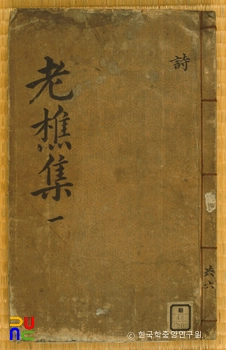 詩
老樵集
一
共六
ⓒ 한국학중앙연구원